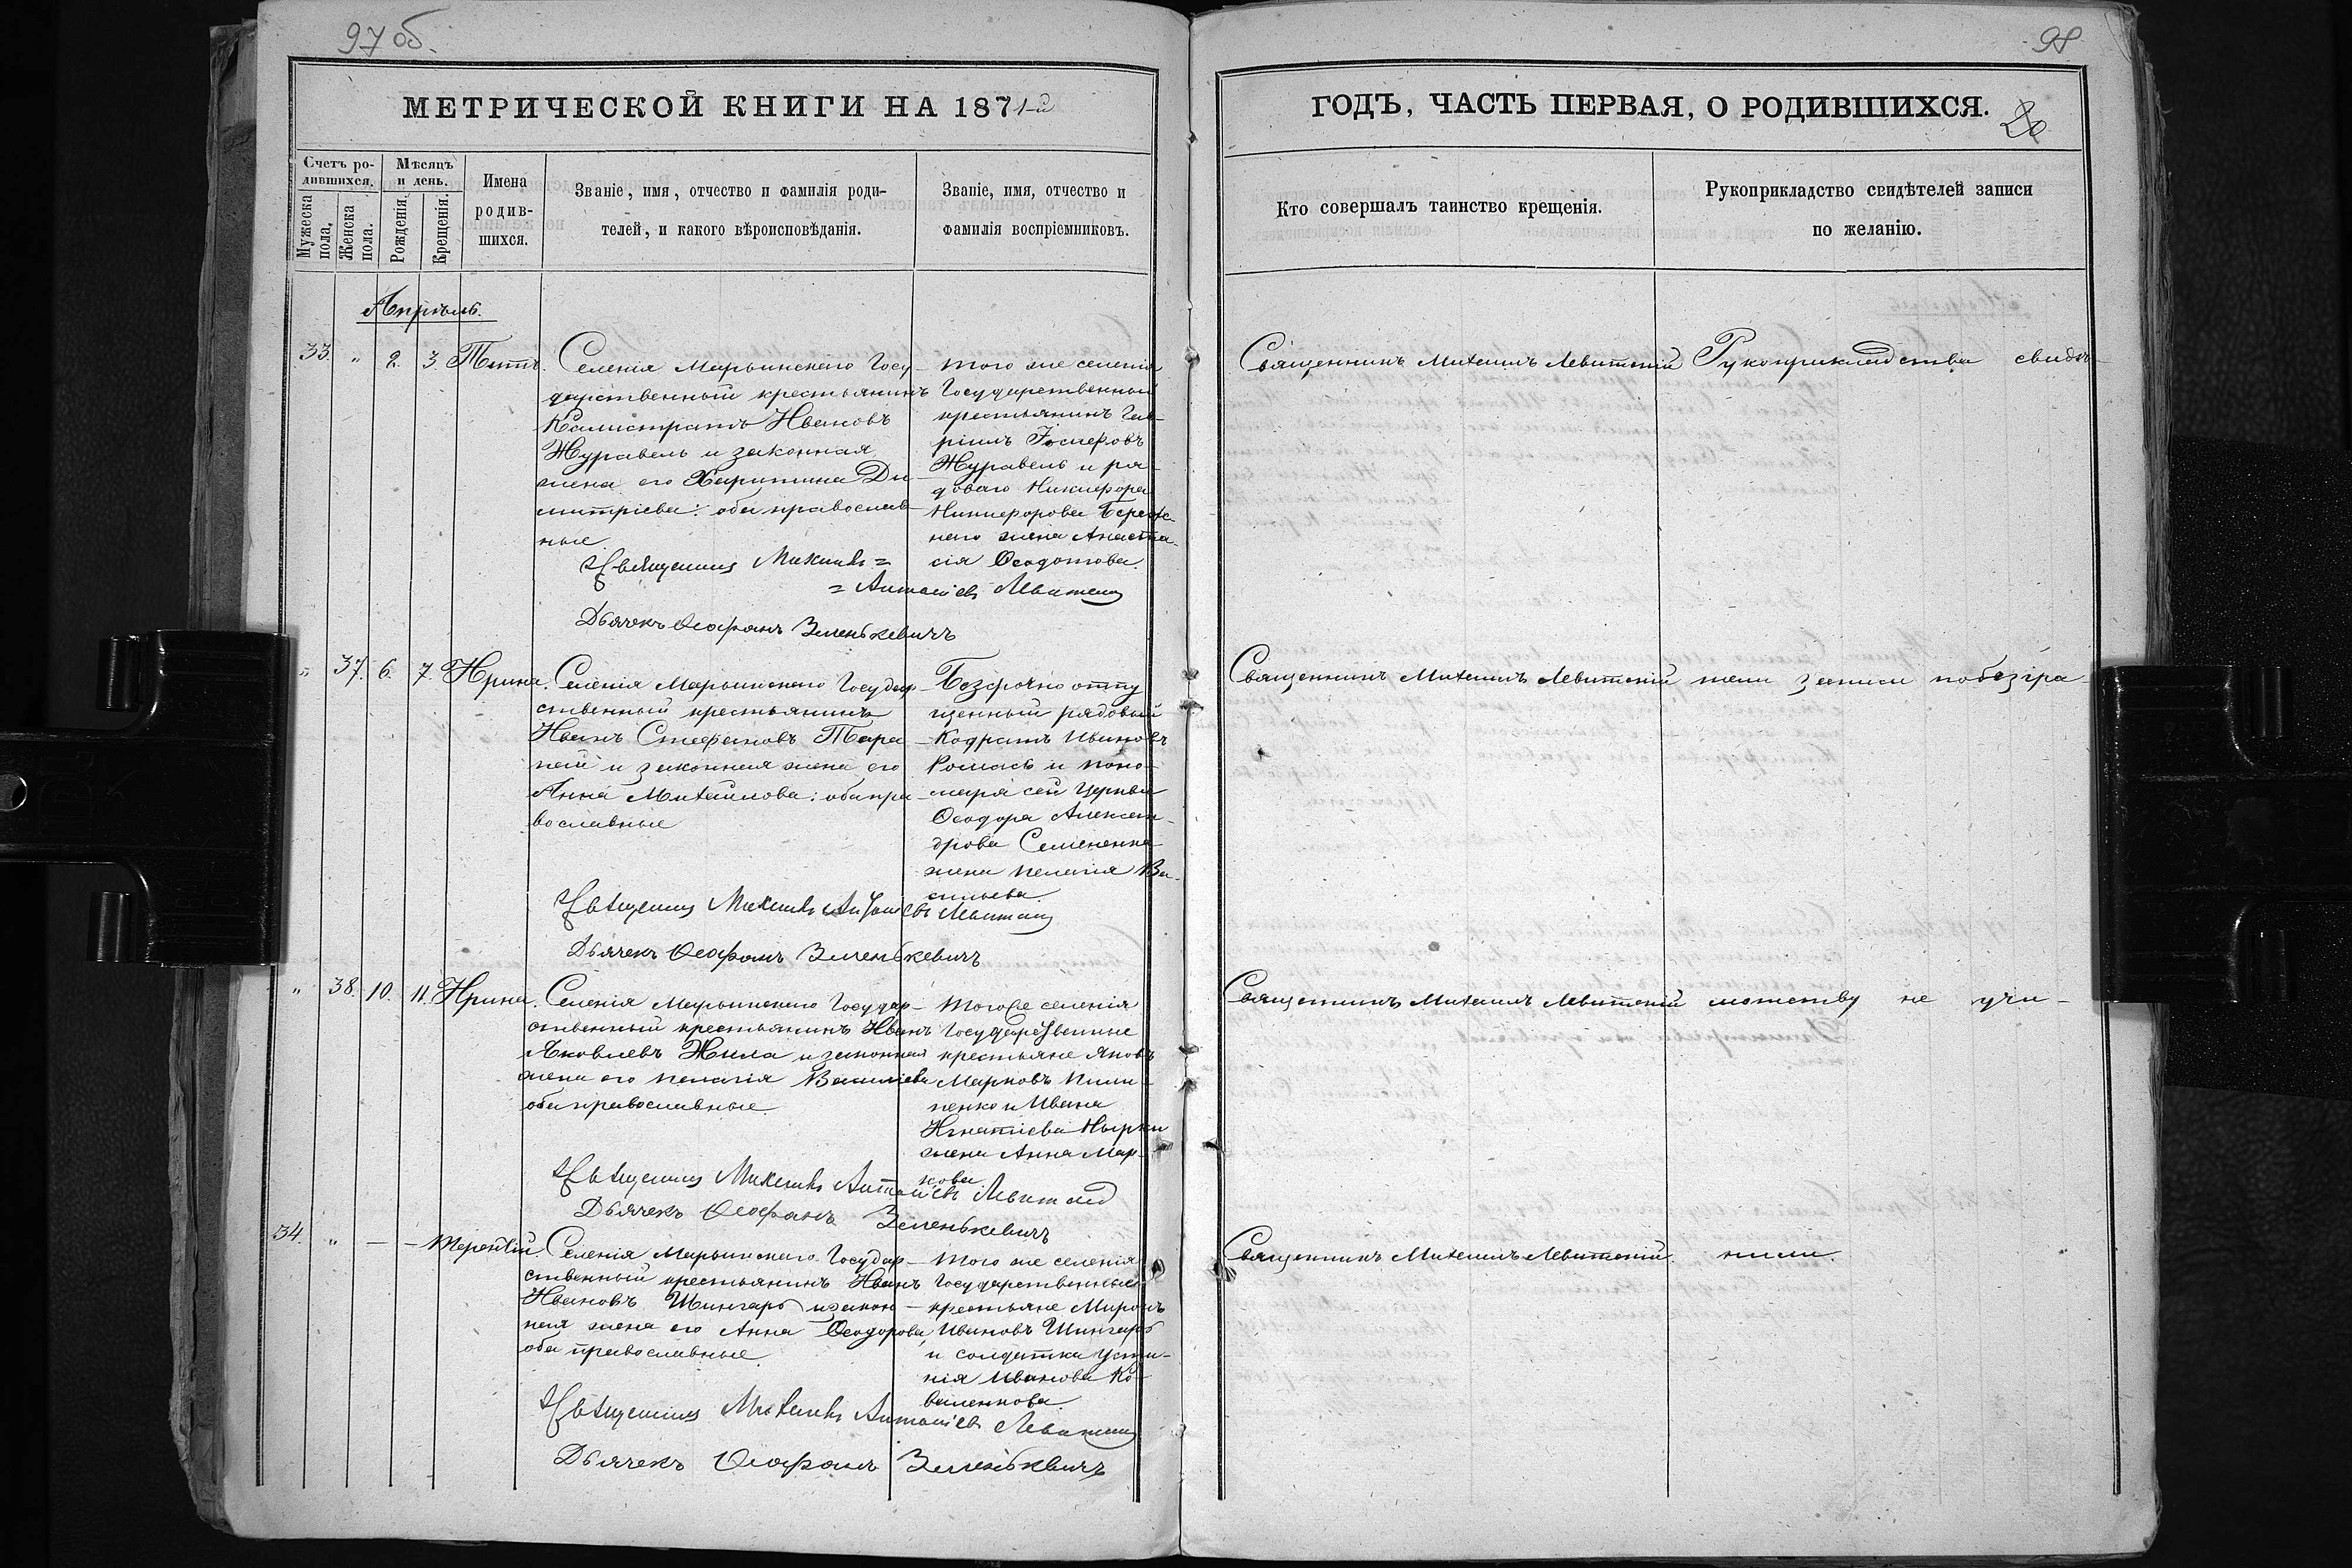 97 об.
МЕТРИЧЕСКОЙ КНИГИ НА 1871-й
Счетъ ро-
дившихся.
Мужеска
пола.
Женска
пола.
Мѣсяцъ
и день.
Рожденія.
Крещенія.
Имена
родив-
шихся.
Званіе, имя, отчество и фамилія роди-
телей, и какого вѣроисповѣданія.
Званіе, имя, отчество и
фамилія воспріемниковъ.
Апрѣль.
33. " 2. 3. Титъ.
Селенія Марьинскаго Госу-
дарственный крестьянинъ
Калистратъ Ивановъ
Журавель и законная
жена его Харитина Ди-
митріева: оба православ-
ные
того же селенія
Государственный
крестьянинъ Гав-
ріилъ Іосифовъ
Журавель и ря-
доваго Никифора
Никифорова Береж-
наго жена Анаста-
сія Ѳеодотова.
Священникъ Михаилъ =
= Антоніевъ Левитскій
Дьячекъ Ѳеофанъ Зеленькевичъ
" 37. 6. 7. Ирина.
Селенія Марьинскаго Государ-
ственный крестьянинъ
Иванъ Стефановъ Тара-
ній и законная жена его
Анна Михайлова: оба пра-
вославные
Безсрочно отпу
щенный рядовый
Кодратъ Ивановъ
Ромась и поно-
маря сей Церкви
Ѳеодора Алексан-
дрова Семененка
жена Пелагія Ва-
сильева.
Священникъ Михаилъ Антоніевъ Левитскій
Дьячекъ Ѳеофанъ Зеленькевичъ
" 38. 10. 11. Ирина.
Селенія Марьинскаго Государ-
ственный крестьянинъ Иванъ
Яковлевъ Жила и законная
жена его Пелагія Василіева
оба православные.
Того же селенія
Государственные
крестьяне Яковъ
Марковъ Пили-
пенко и Ивана
Игнатіева Нырки
жена Анна Мар-
кова
Священникъ Михаилъ Антоніевъ Левитскій
Дьячекъ Ѳеофанъ Зеленькевичъ
34. " — — Терентій.
Селенія Марьинскаго Государ-
ственный крестьянинъ Иванъ
Ивановъ Шингаръ и закон-
ная жена его Анна Ѳеодорова,
оба православные.
того же селенія
Государственные
крестьяне Миронъ
Ивановъ Шингаръ
и солдатка Усти-
нія Иванова Ко-
валенкова.
Священникъ Михаилъ Антоніевъ Левитскій
Дьячекъ Ѳеофанъ Зеленькевичъ
98
ГОДЪ, ЧАСТЬ ПЕРВАЯ, О РОДИВШИХСЯ.
Кто совершалъ таинство крещенія.
Рукоприкладство свидѣтелей записи
по желанію.
Священникъ Михаилъ Левитскій Рукоприкладства свидѣ-
Священникъ Михаилъ Левитскій тели записи по безгра-
Священникъ Михаилъ Левитскій мотству не учи-
Священникъ Михаилъ Левитскій. нили.